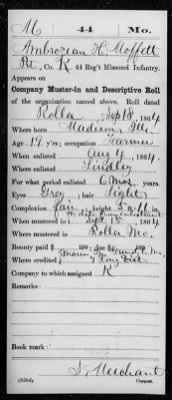 M 44 Mo.
Ambrozean H. Moffett
Pvt., Co. K, 44 Reg't Missouri Infantry.
Appears on
Company Muster-in and Descriptive Roll
of the organization named above. Roll dated
Rolla Sept 18, 1864
Where born Madison, Ills
Age 19 y'rs; occupation Farmer
When enlisted Aug 4, 1864
Where enlisted Lindley
For what period enlisted 6 Mos.
Eyes Grey; hair Light
Complexion Fair; height 5 ft.
When mustered in Sept 18, 1864
Where mustered in Rolla Mo.
Bounty paid $ 100; due $ 100
Where credited
Company to which assigned K
Remarks:
Book mark:
J. Merchant
Copyist.